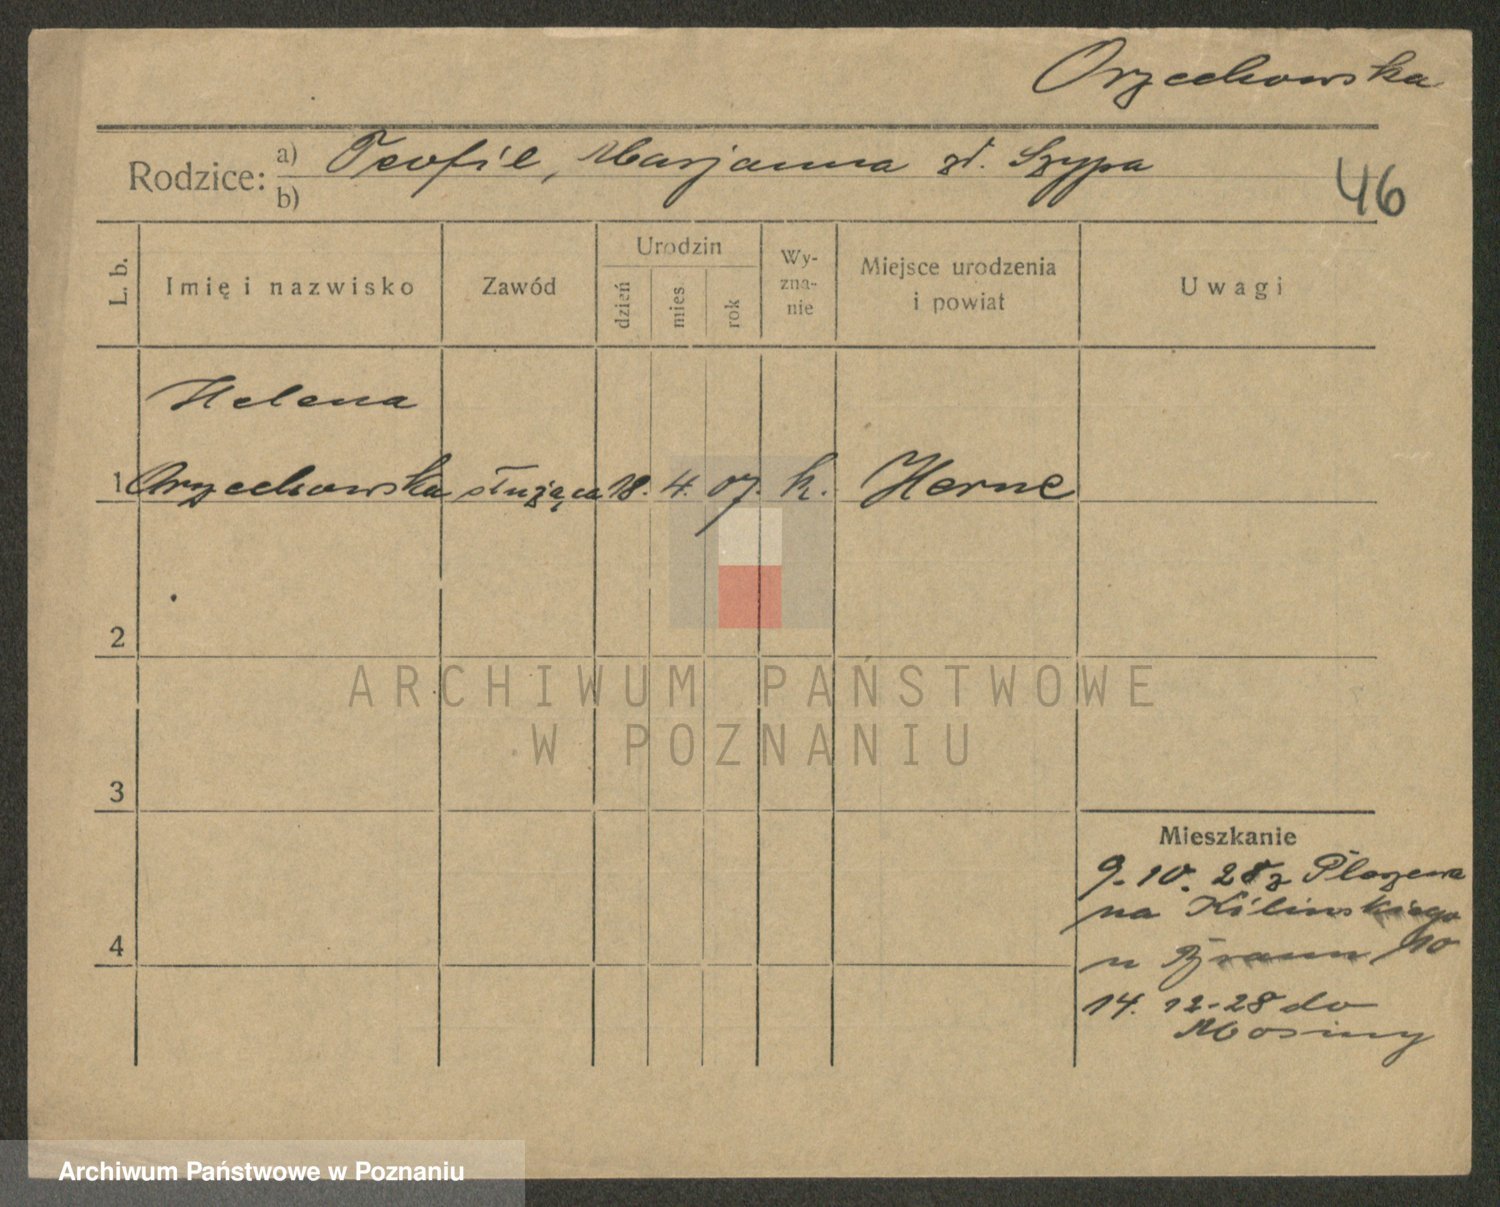 Orzechowska
Rodzice: a) Teofil, Marjanna zd. Szypa
b)
46
L. b.
Imię i nazwisko
Zawód
Urodzin
dzień
mies
rok
Wy-
zna-
nie
Miejsce urodzenia
i powiat
Uwagi
Helena
1 Orzechowska służąca 18. 4. 07. k. Herne
2
ARCHIWUM PAŃSTWOWE
W POZNANIU
3
Mieszkanie
9.10.28 z
na Kilińskiego
u Braun 10
4
14. 12-28 do
Mosiny
Archiwum Państwowe w Poznaniu